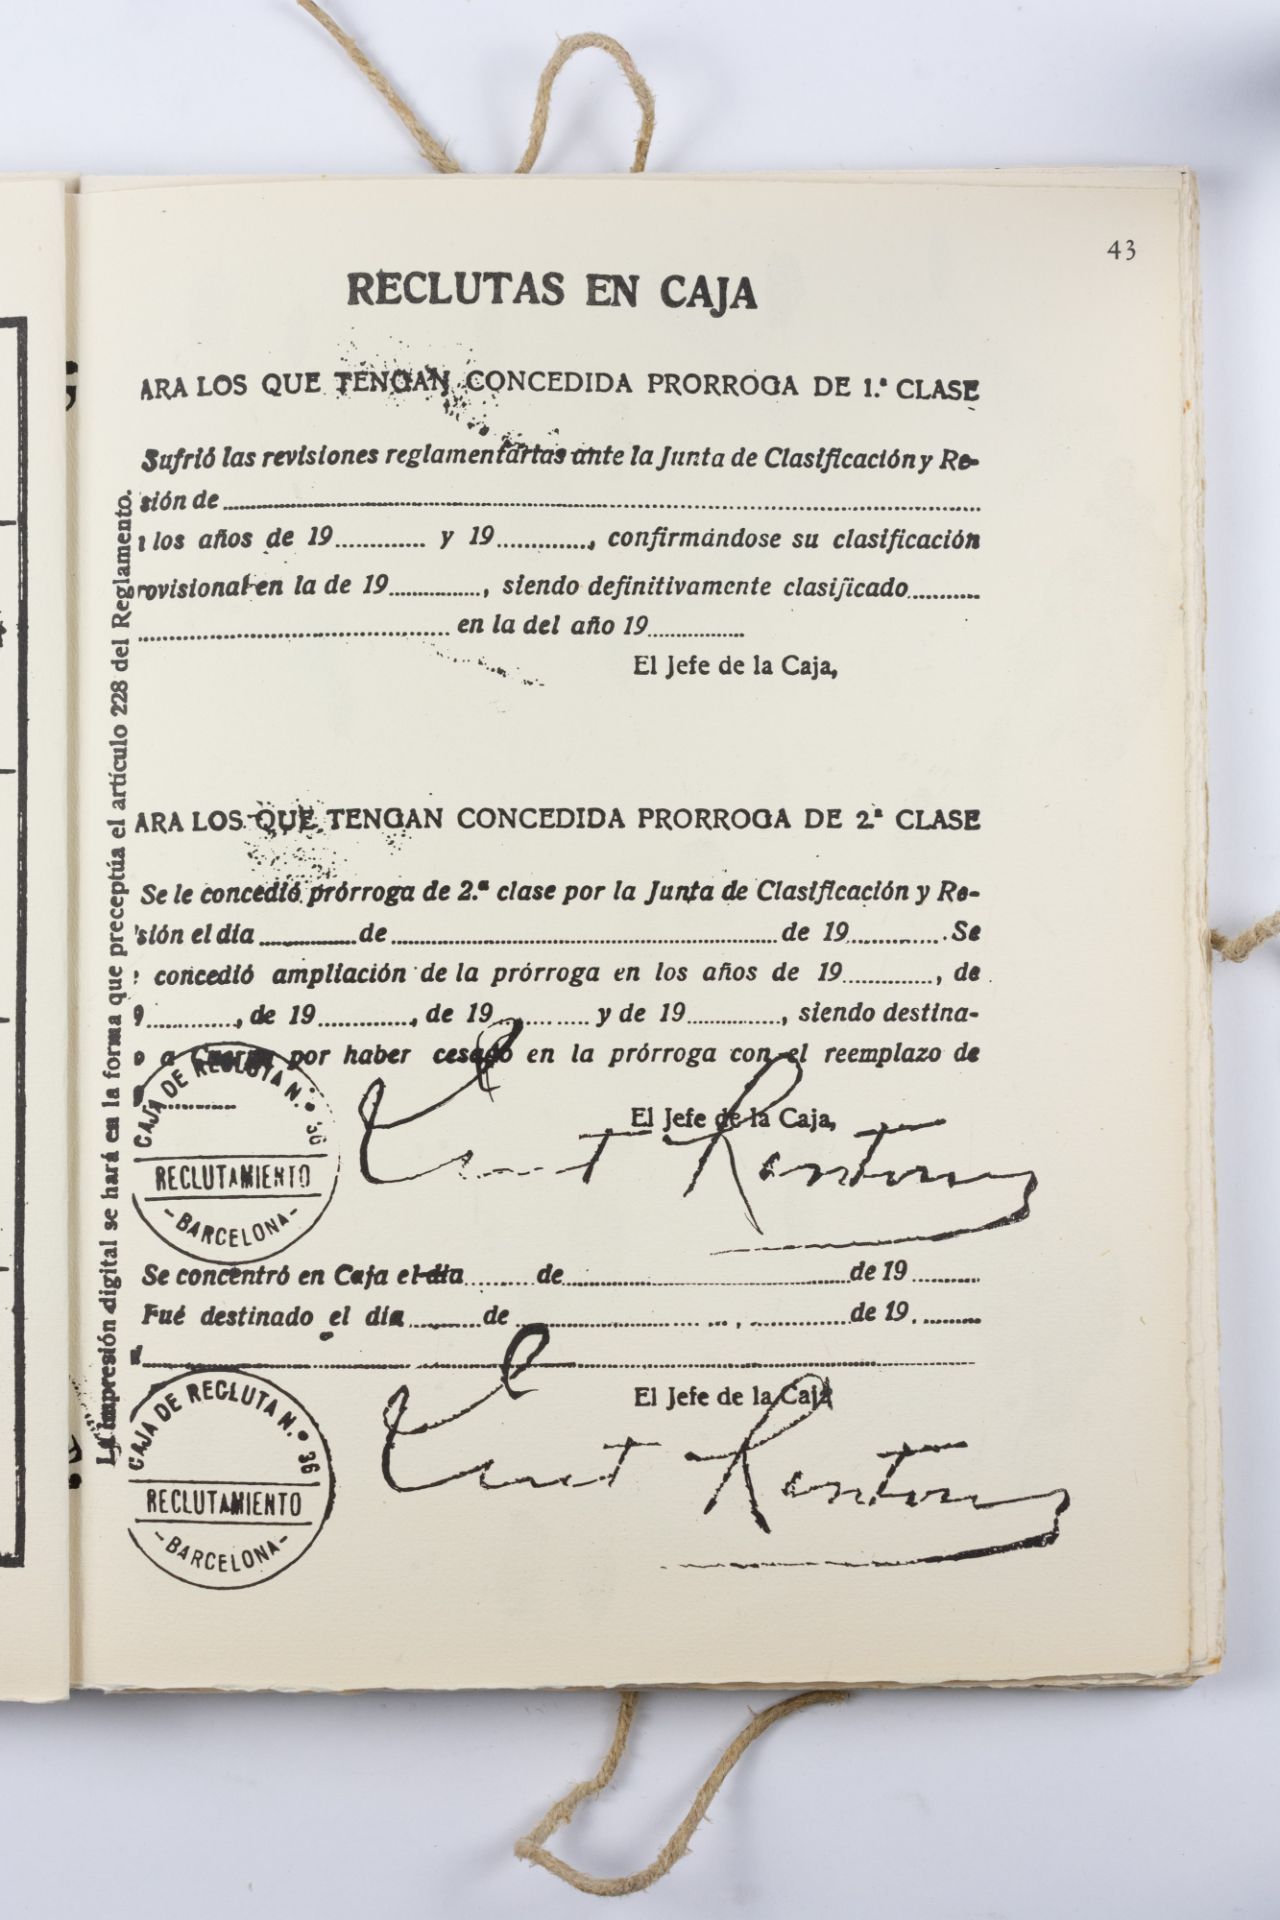 43
RECLUTAS EN CAJA
ARA LOS QUE TENGAN CONCEDIDA PRORROGA DE 1.ª CLASE
Sufrió las revisiones reglamentarias ante la Junta de Clasificación y Re-
sión de
los años de 19 y 19, confirmándose su clasificación
rovisional en la de 19, siendo definitivamente clasificado
en la del año 19
El Jefe de la Caja,
ARA LOS QUE TENGAN CONCEDIDA PRORROGA DE 2.ª CLASE
Se le concedió prórroga de 2.ª clase por la Junta de Clasificación y Re-
sión el día de de 19 Se
concedió ampliación de la prórroga en los años de 19, de
9, de 19, de 19 y de 19, siendo destina-
o a Cuerpo por haber cesado en la prórroga con el reemplazo de
El Jefe de la Caja,
CAJA DE RECLUTA N.º 36
RECLUTAMIENTO
-BARCELONA-
Se concentró en Caja el día de de 19
Fué destinado el día de de 19
El Jefe de la Caja
CAJA DE RECLUTA N.º 36
RECLUTAMIENTO
-BARCELONA-
La impresión digital se hará en la forma que preceptúa el artículo 228 del Reglamento.